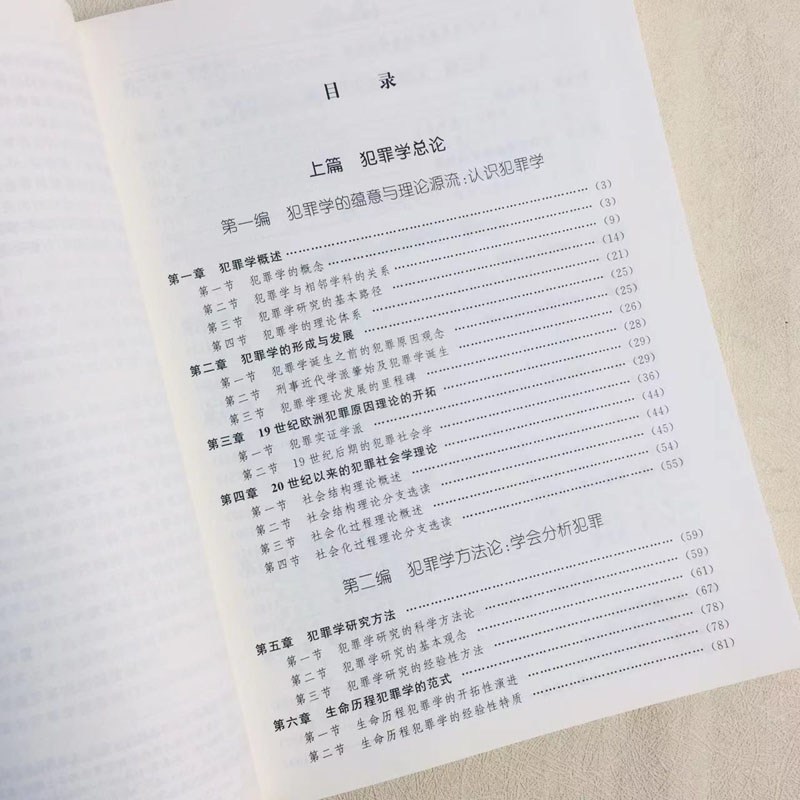 目 录
上篇 犯罪学总论
第一编 犯罪学的蕴意与理论源流:认识犯罪学
第一章 犯罪学概述 (3)
第一节 犯罪学的概念 (3)
第二节 犯罪学与相邻学科的关系 (9)
第三节 犯罪学研究的基本路径 (14)
第四节 犯罪学的理论体系 (21)
第二章 犯罪学的形成与发展 (25)
第一节 犯罪学诞生之前的犯罪原因观念 (25)
第二节 刑事近代学派肇始及犯罪学诞生 (26)
第三节 犯罪学理论发展的里程碑 (28)
第三章 19世纪欧洲犯罪原因理论的开拓 (29)
第一节 犯罪实证学派 (29)
第二节 19世纪后期的犯罪社会学 (36)
第四章 20世纪以来的犯罪社会学理论 (44)
第一节 社会结构理论概述 (44)
第二节 社会结构理论分支选读 (45)
第三节 社会化过程理论概述 (54)
第四节 社会化过程理论分支选读 (55)
第二编 犯罪学方法论:学会分析犯罪
第五章 犯罪学研究方法 (59)
第一节 犯罪学研究的科学方法论 (59)
第二节 犯罪学研究的基本观念 (61)
第三节 犯罪学研究的经验性方法 (67)
第六章 生命历程犯罪学的范式 (78)
第一节 生命历程犯罪学的开拓性演进 (78)
第二节 生命历程犯罪学的经验性特质 (81)